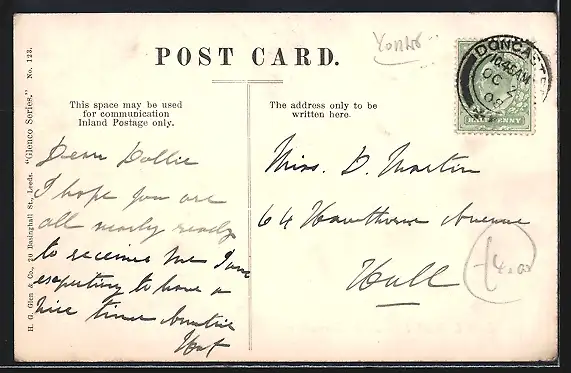 POST CARD.
This space may be used
for communication
Inland Postage only.
The address only to be
written here.
H. G. Glen & Co., 20 Basinghall St., Leeds. "Glenco Series." No. 123.
DONCASTER
10.45AM
OC 2
HALFPENNY
Dear Dollie
I hope you are
all nearly ready
to receive me I am
expecting to have a
nice time Auntie
Miss. D. Martin
64 Hawthorne Avenue
Hull